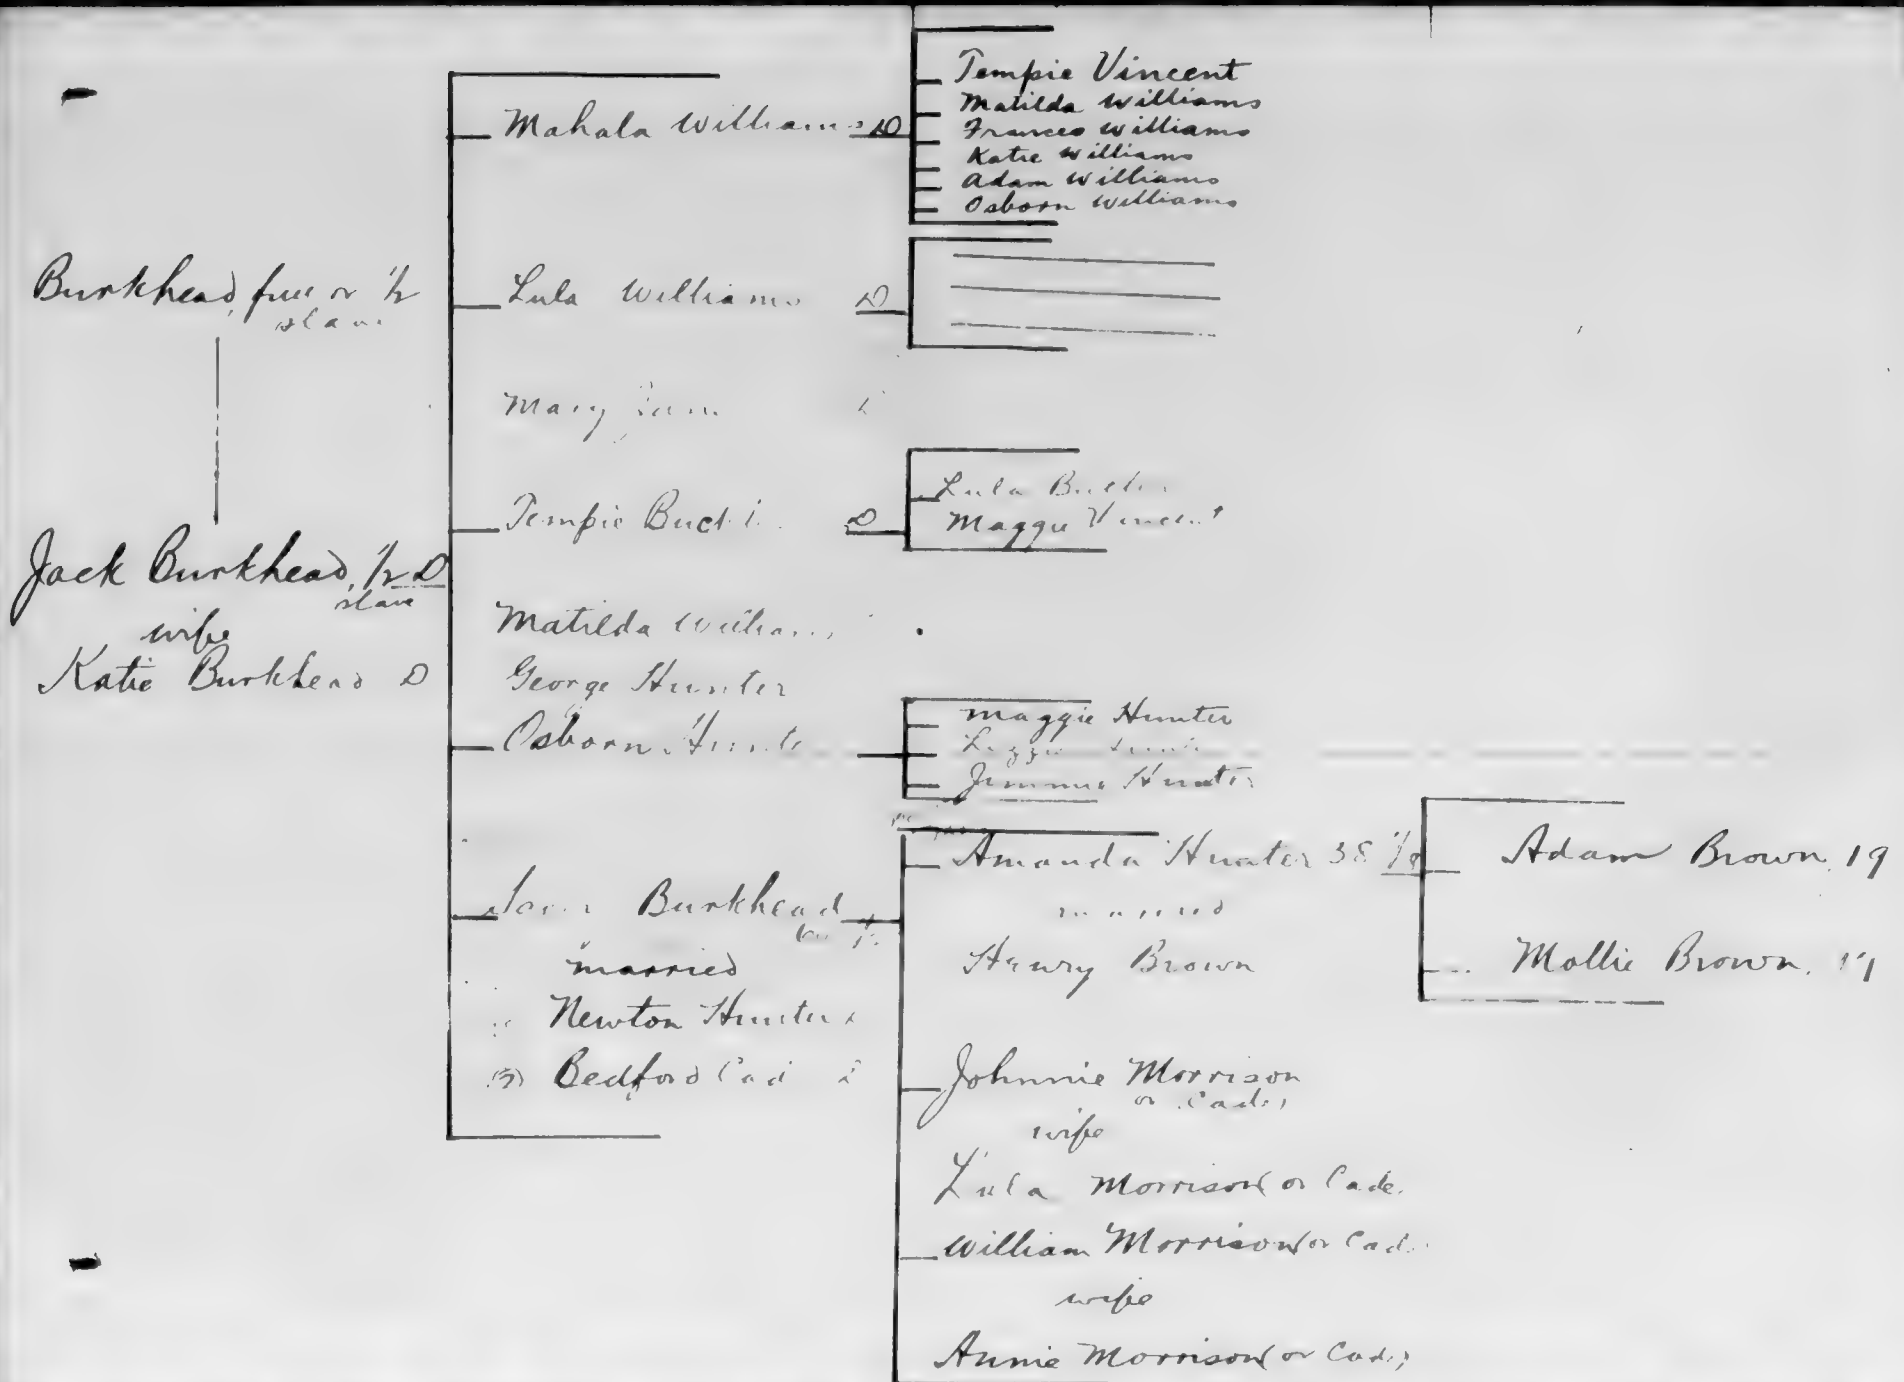 Burkhead, full or 1/2
slave
Jack Burkhead, 1/2 D
slave
wife
Katie Burkhead D
Mahala Williams D
Lula Williams D
Mary
Tempie D
Matilda Williams
George Hunter
Osborn Hunter
Burkhead
married
Newton Hunter
(3) Bedford
Tempie Vincent
Matilda Williams
Frances Williams
Katie Williams
Adam Williams
Osborn Williams
Lula
Maggie Vincent
Maggie Hunter
Lizzie
Jimmie Hunter
Amanda Hunter 38
married
Henry Brown
Johnnie Morrison
or Cade
wife
Lula Morrison or Cade
William Morrison or Cade
wife
Annie Morrison or Cade
Adam Brown, 19
Mollie Brown,